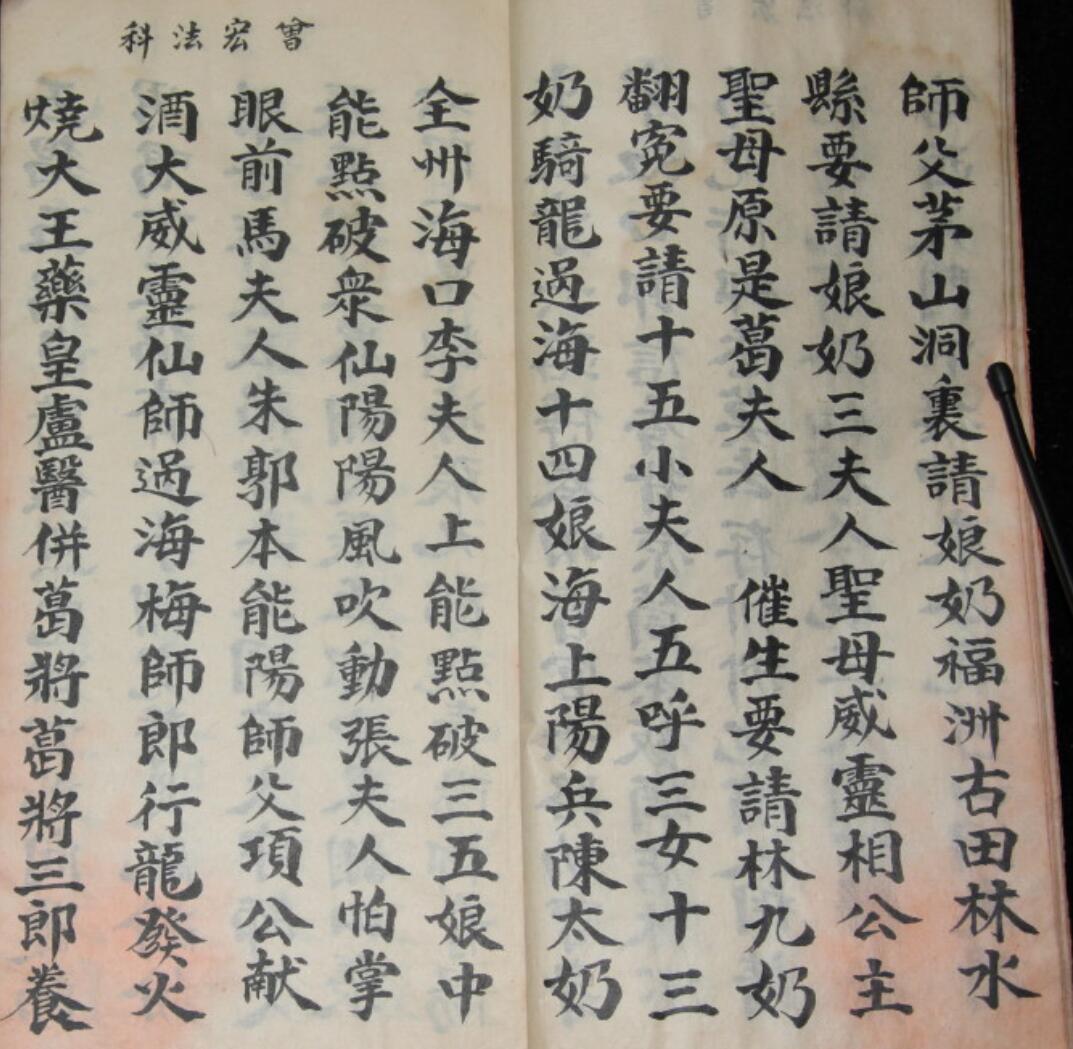 師父茅山洞裏請娘奶福洲古田林水
縣要請娘奶三夫人聖母威靈相公主
聖母原是葛夫人 催生要請林九奶
翻冤要請十五小夫人五呼三女十三
奶騎龍過海十四娘海上陽兵陳太奶
全州海口李夫人上能點破三五娘中
能點破眾仙陽陽風吹動張夫人怕掌
眼前馬夫人朱郭本能陽師父項公献
酒大威靈仙師過海梅師郎行龍發火
燒大王藥皇盧醫併葛將葛將三郎養
曾宏法科